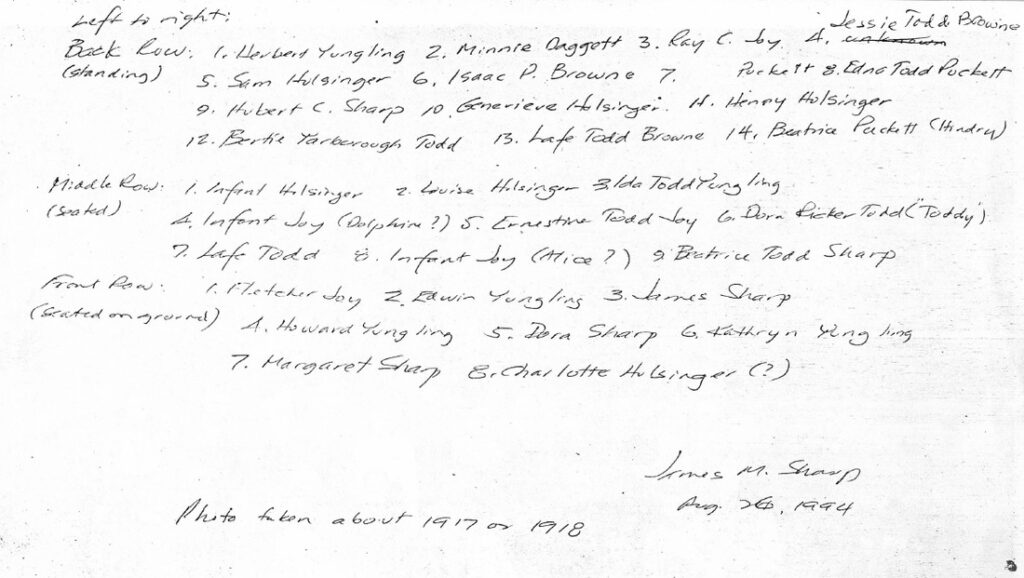 Left to right:
Jessie Todd Browne
Back Row: 1. Herbert Yungling 2. Minnie Daggett 3. Ray C. Joy 4. unknown
(standing) 5. Sam Hulsinger 6. Isaac P. Browne 7. Puckett 8. Edna Todd Puckett
9. Hubert C. Sharp 10. Genevieve Hulsinger 11. Henny Hulsinger
12. Bertie Yarborough Todd 13. Lafe Todd Browne 14. Beatrice Puckett (Hindry)
Middle Row: 1. Infant Hulsinger 2. Louise Hulsinger 3. Ida Todd Yungling
(seated) 4. Infant Joy (Dolphine?) 5. Ernestine Todd Joy 6. Dora Ricker Todd ("Toddy")
7. Lafe Todd 8. Infant Joy (Alice?) 9. Beatrice Todd Sharp
Front Row: 1. Fletcher Joy 2. Edwin Yungling 3. James Sharp
(seated on ground) 4. Howard Yungling 5. Dora Sharp 6. Kathryn Yungling
7. Margaret Sharp 8. Charlotte Hulsinger (?)
James M. Sharp
Aug. 26, 1994
Photo taken about 1917 or 1918